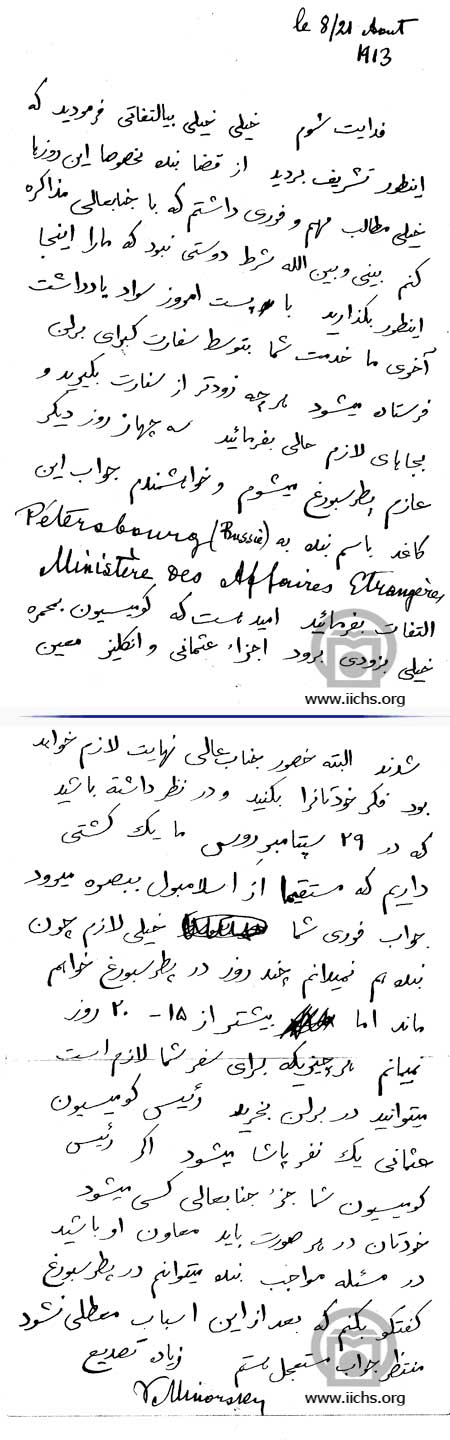 le 8/21 Aout
1913
فدایت شوم خیلی خیلی بیالتفاتی فرمودید که
اینطور تشریف بردید از قضا بنده بخصوصا این روزها
خیلی مطالب مهم و فوری داشتم که با جنابعالی مذاکره
کنم بینی و بین الله شرط دوستی نبود که ما را اینجا
اینطور بگذارید با پست امروز سواد یادداشت
آخری ما خدمت شما بتوسط سفارت کبرای برلن
فرستاده میشود هر چه زودتر از سفارت بگیرید و
بجاهای لازم حالی بفرمائید سه چهار روز دیگر
عازم پطرسبورغ میشوم و خواهشمندم جواب این
کاغذ باسم بنده به Pétersbourg (Russie)
Ministère des Affaires Etrangères
التفات بفرمائید امید هست که کومیسیون محمره
خیلی بزودی برود اجزاء عثمانی و انگلیز معین
www.iichs.org
شدند البته حضور جناب عالی نهایت لازم خواهد
بود فکر خودتانرا بکنید و در نظر داشته باشید
که در ۲۹ سپتامبر روس ما یک کشتی
داریم که مستقیما از اسلامبول ببصره میرود
جواب فوری شما خیلی لازم چون
بنده هم نمیدانم چند روز در پطرسبورغ خواهم
ماند اما بیشتر از ۱۵ - ۲۰ روز
نمیمانم هر چیزیکه برای سفر شما لازم است
میتوانید در برلن بخرید رئیس کومیسیون
عثمانی یک نفر پاشا میشود اگر رئیس
کومیسیون شما جزء جنابعالی کسی میشود
خودتان در هر صورت باید معاون او باشید
در مسئله مواجب بنده میتوانم در پطرسبورغ
گفتگو بکنم که بعد از این اسباب معطلی نشود
منتظر جواب مستعجل هستم زیاده تصدیع
V. Minorsky
www.iichs.org